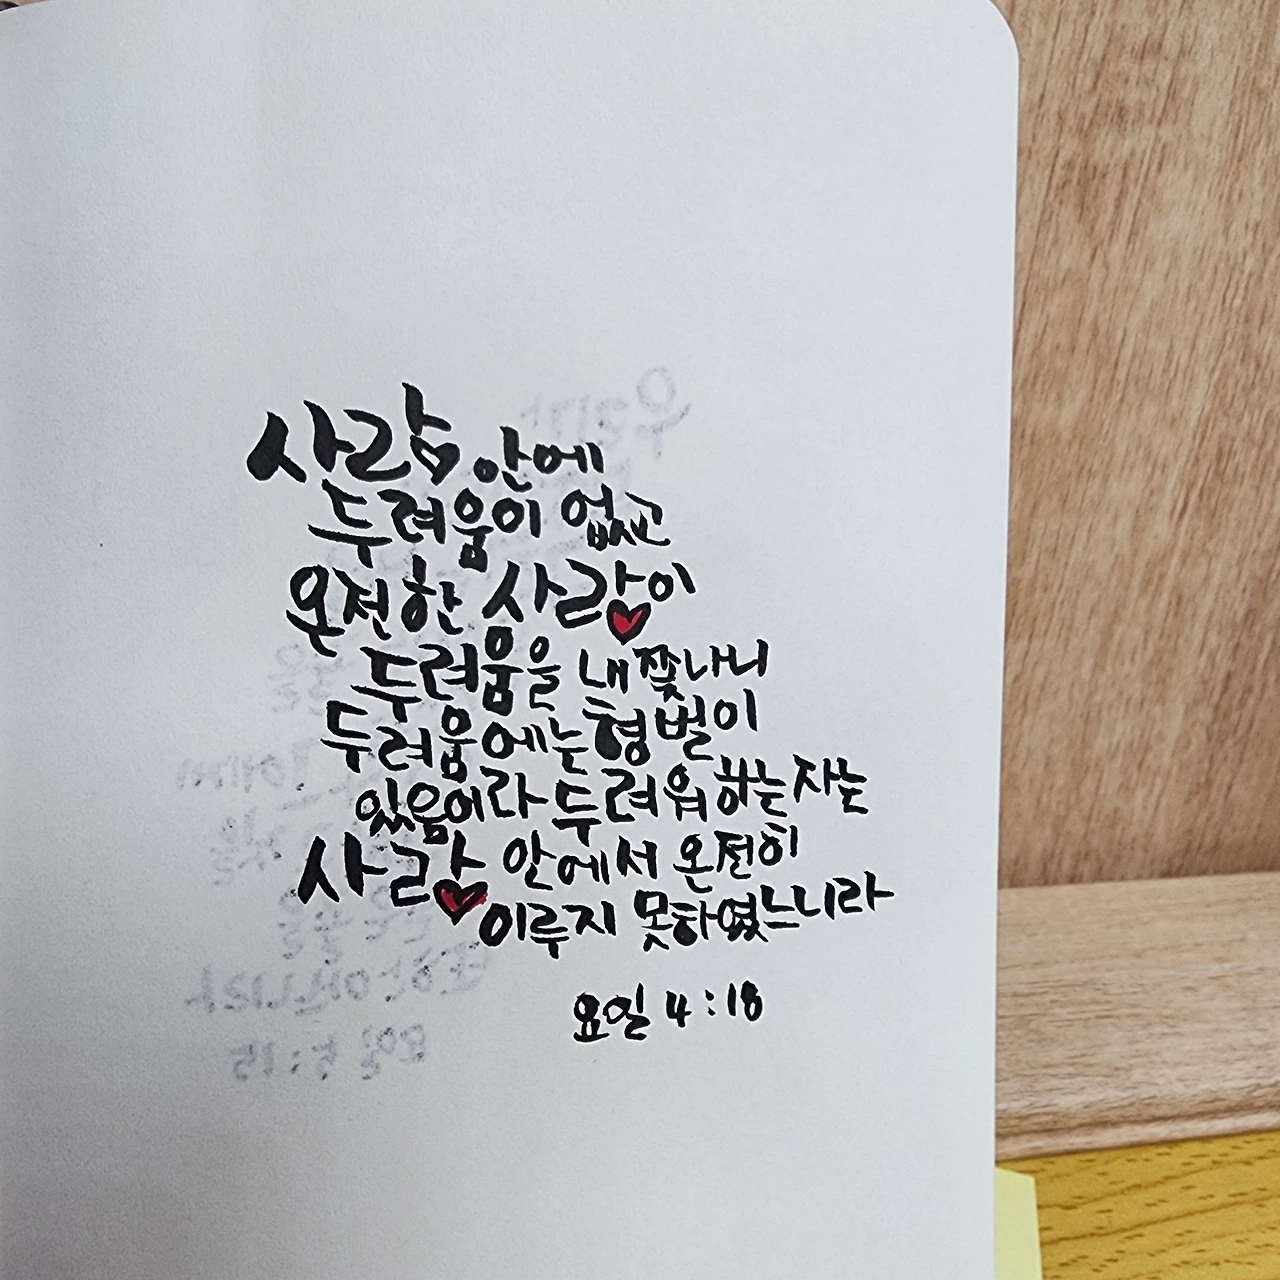 사랑 안에
두려움이 없고
온전한 사랑이
두려움을 내쫓나니
두려움에는 형벌이
있음이라 두려워하는 자는
사랑 안에서 온전히
이루지 못하였느니라
요일 4:18